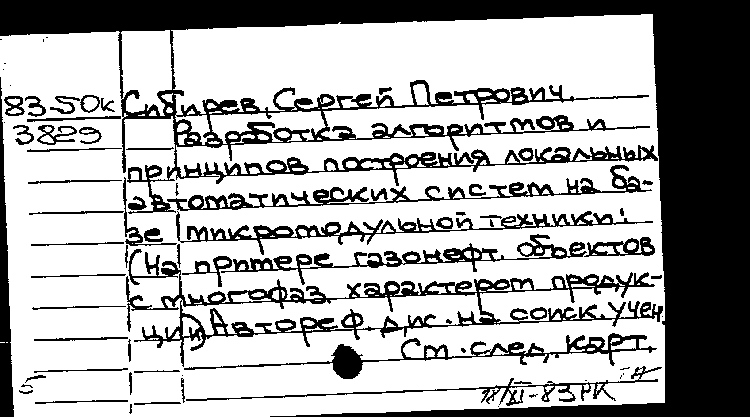 83-50к Сибирев, Сергей Петрович.
3829 Разработка алгоритмов и
принципов построения локальных
автоматических систем на ба-
зе микромодульной техники:
(На примере газонефт. объектов
с многофаз. характером продук-
ции) Автореф. дис. на соиск. учен.
См. след. карт.
5 -83РК